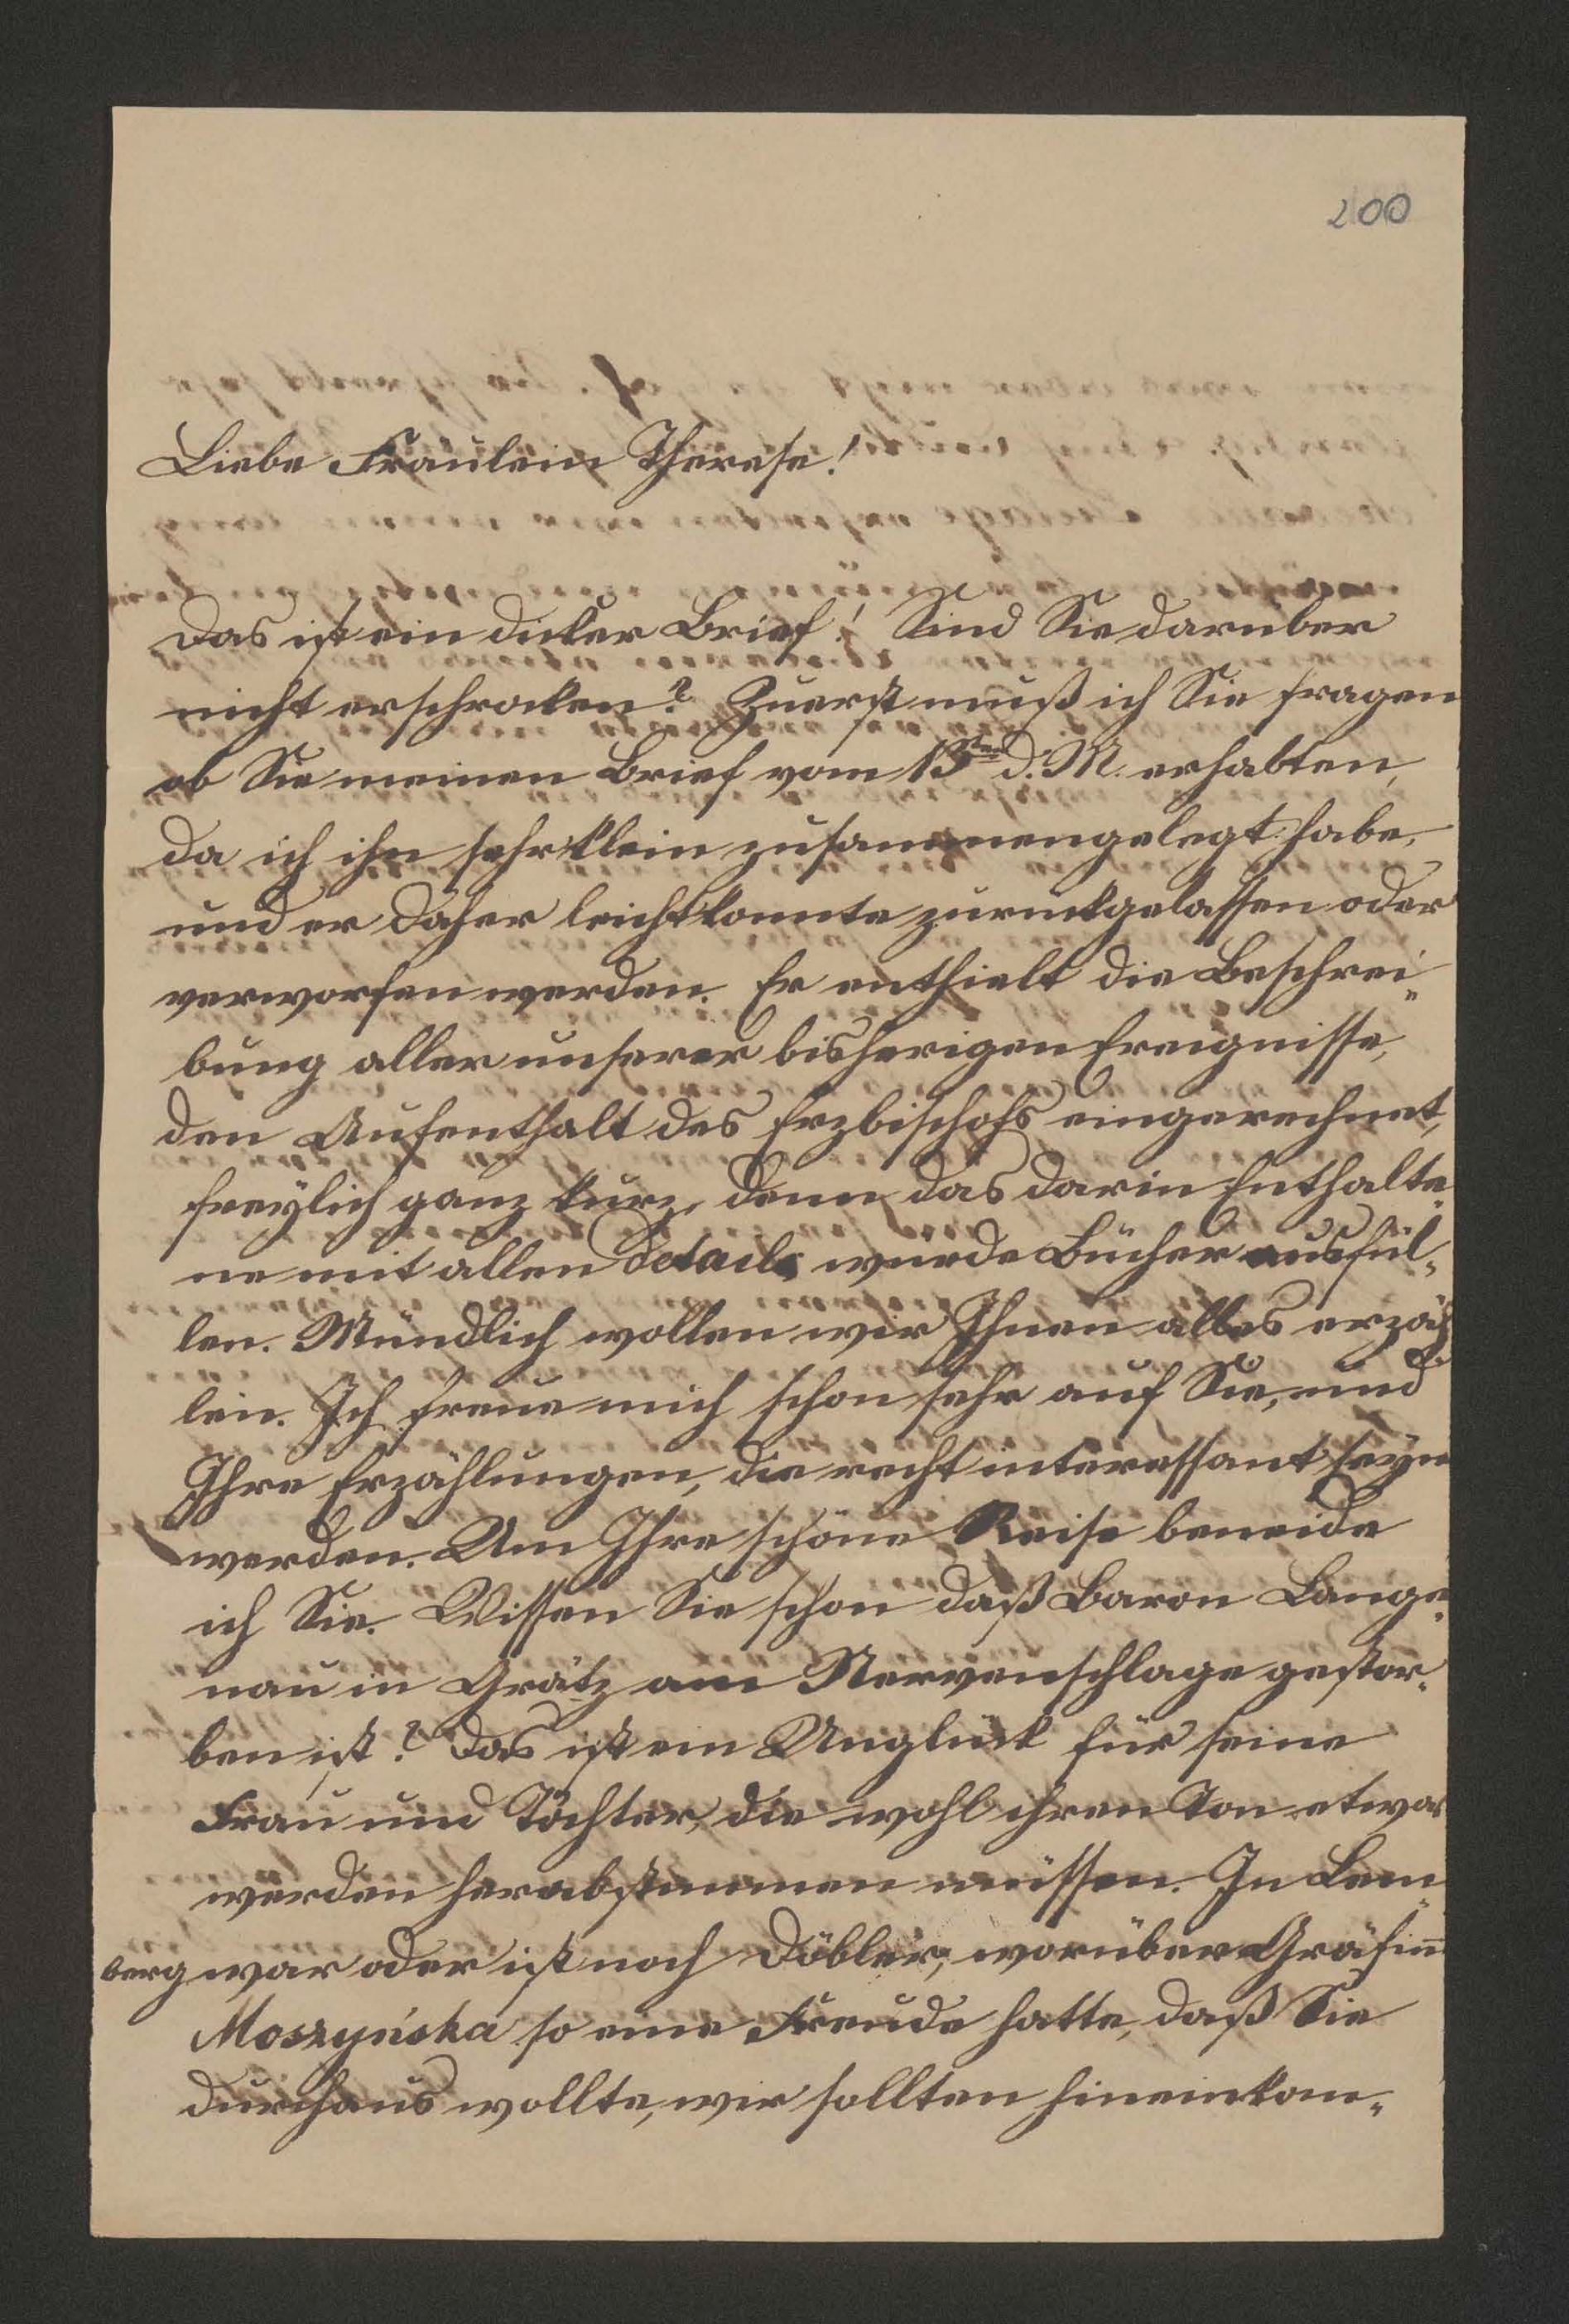 200
Liebe Fräulein Therese!
Das ist ein dicker Brief! Sind Sie darüber
nicht erschrocken? Zuerst muß ich Sie fragen
ob Sie meinen Brief vom 15ten d. M. erhalten,
da ich ihn sehr klein zusammengelegt habe,
und er daher leicht konnte zurückgelassen oder
verworfen werden. Er enthielt die Beschrei„
bung aller unserer bisherigen Ereignisse,
den Aufenthalt des Erzbischofs eingerechnet,
freylich ganz kurz, denn das darin Enthalte„
ne mit allen Details würde Bücher ausfül„
len. Mündlich wollen wir Ihnen alles erzäh„
len. Ich freue mich schon sehr auf Sie, und
Ihre Erzählungen, die recht interessant seyn
werden. Um Ihre schöne Reise beneide
ich Sie. Wissen Sie schon daß Baron Lange„
nau in Grätz am Nervenschlage gestor„
ben ist? Das ist ein Unglück für seine
Frau und Töchter, die wohl ihren Ton etwas
werden herabstimmen müssen. In Lem„
berg war oder ist noch Döbler, worüber Gräfin
Moszyńska so eine Freude hatte, daß Sie
durchaus wollte, wir sollten hineinkom„